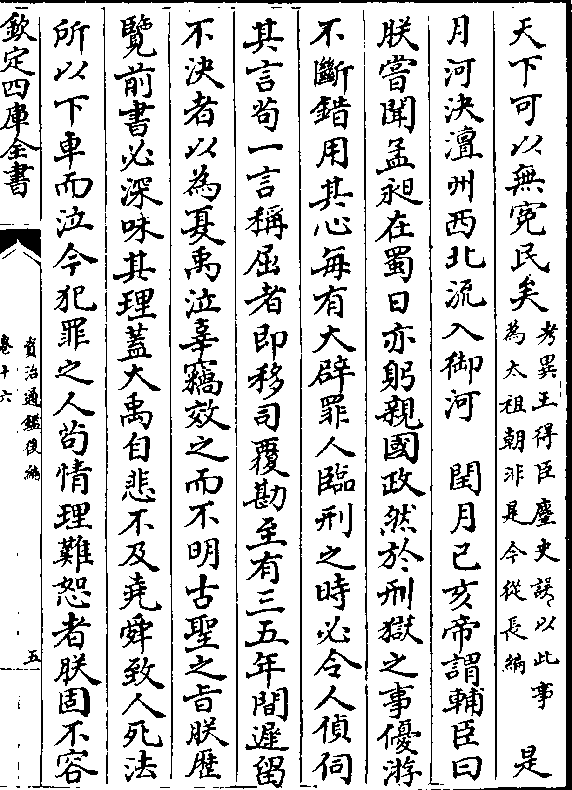 天下可以無寃民矣考異王得臣麈史誤以此事為太祖朝非是今從長編 是
月河決澶州西北流入御河 閏月己亥帝謂輔臣曰
朕嘗聞孟昶在蜀日亦躬親國政然於刑獄之事優游
不斷錯用其心每有大辟罪人臨刑之時必令人偵伺
其言苟一言稱屈者即移司覆勘至有三五年間遲留
不決者以為夏禹泣辜竊效之而不明古聖之旨朕歴
覽前書必深味其理蓋大禹自悲不及堯舜致人死法
所以下車而泣今犯罪之人苟情理難恕者朕固不容
欽定四庫全書
資治通鑑後編
卷十六
五